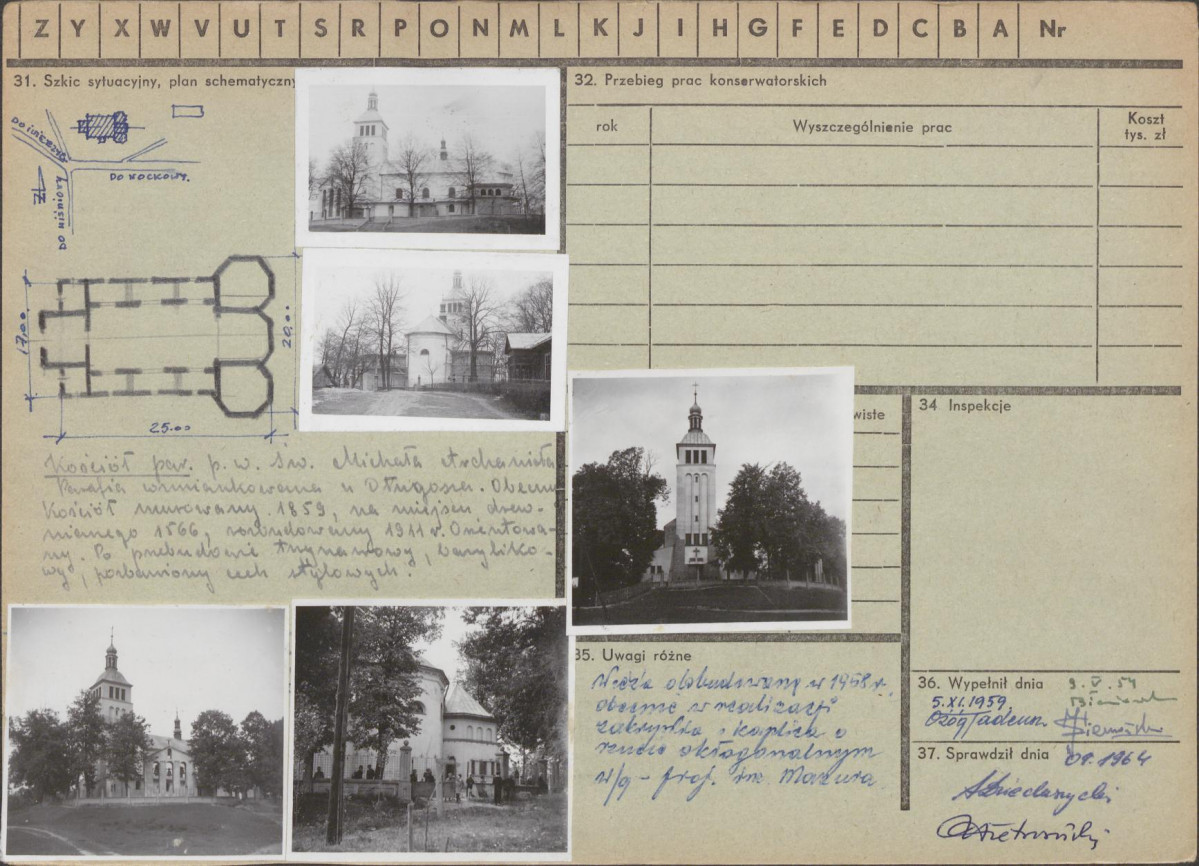 Z Y X W V U T S R P O N M L K J I H G F E D C B A Nr
31. Szkic sytuacyjny, plan schematyczny
DO KOCKOWY.
DO WIŚNIOWY
17,00
20,00
25.00
Kościół par. p.w. św. Michała Archanioła
Parafia wzmiankowana u Długosza. Obecny
Kościół murowany 1859, na miejscu drew-
nianego 1566, rozbudowany 1911 r. Orientowa-
ny. Po przebudowie trójnawowy, bazyliko-
wy, pozbawiony cech stylowych.
32. Przebieg prac konserwatorskich
rok
Wyszczególnienie prac
Koszt
tys. zł
wiste
34 Inspekcje
35. Uwagi różne
Wieża obbudowana w 1958 r.
obecnie w realizacji
zakrystia i kaplica o
rzucie oktogonalnym
w/g - prof. inż. Mazura.
36. Wypełnił dnia
5.XI.1959
37. Sprawdził dnia
09.1964